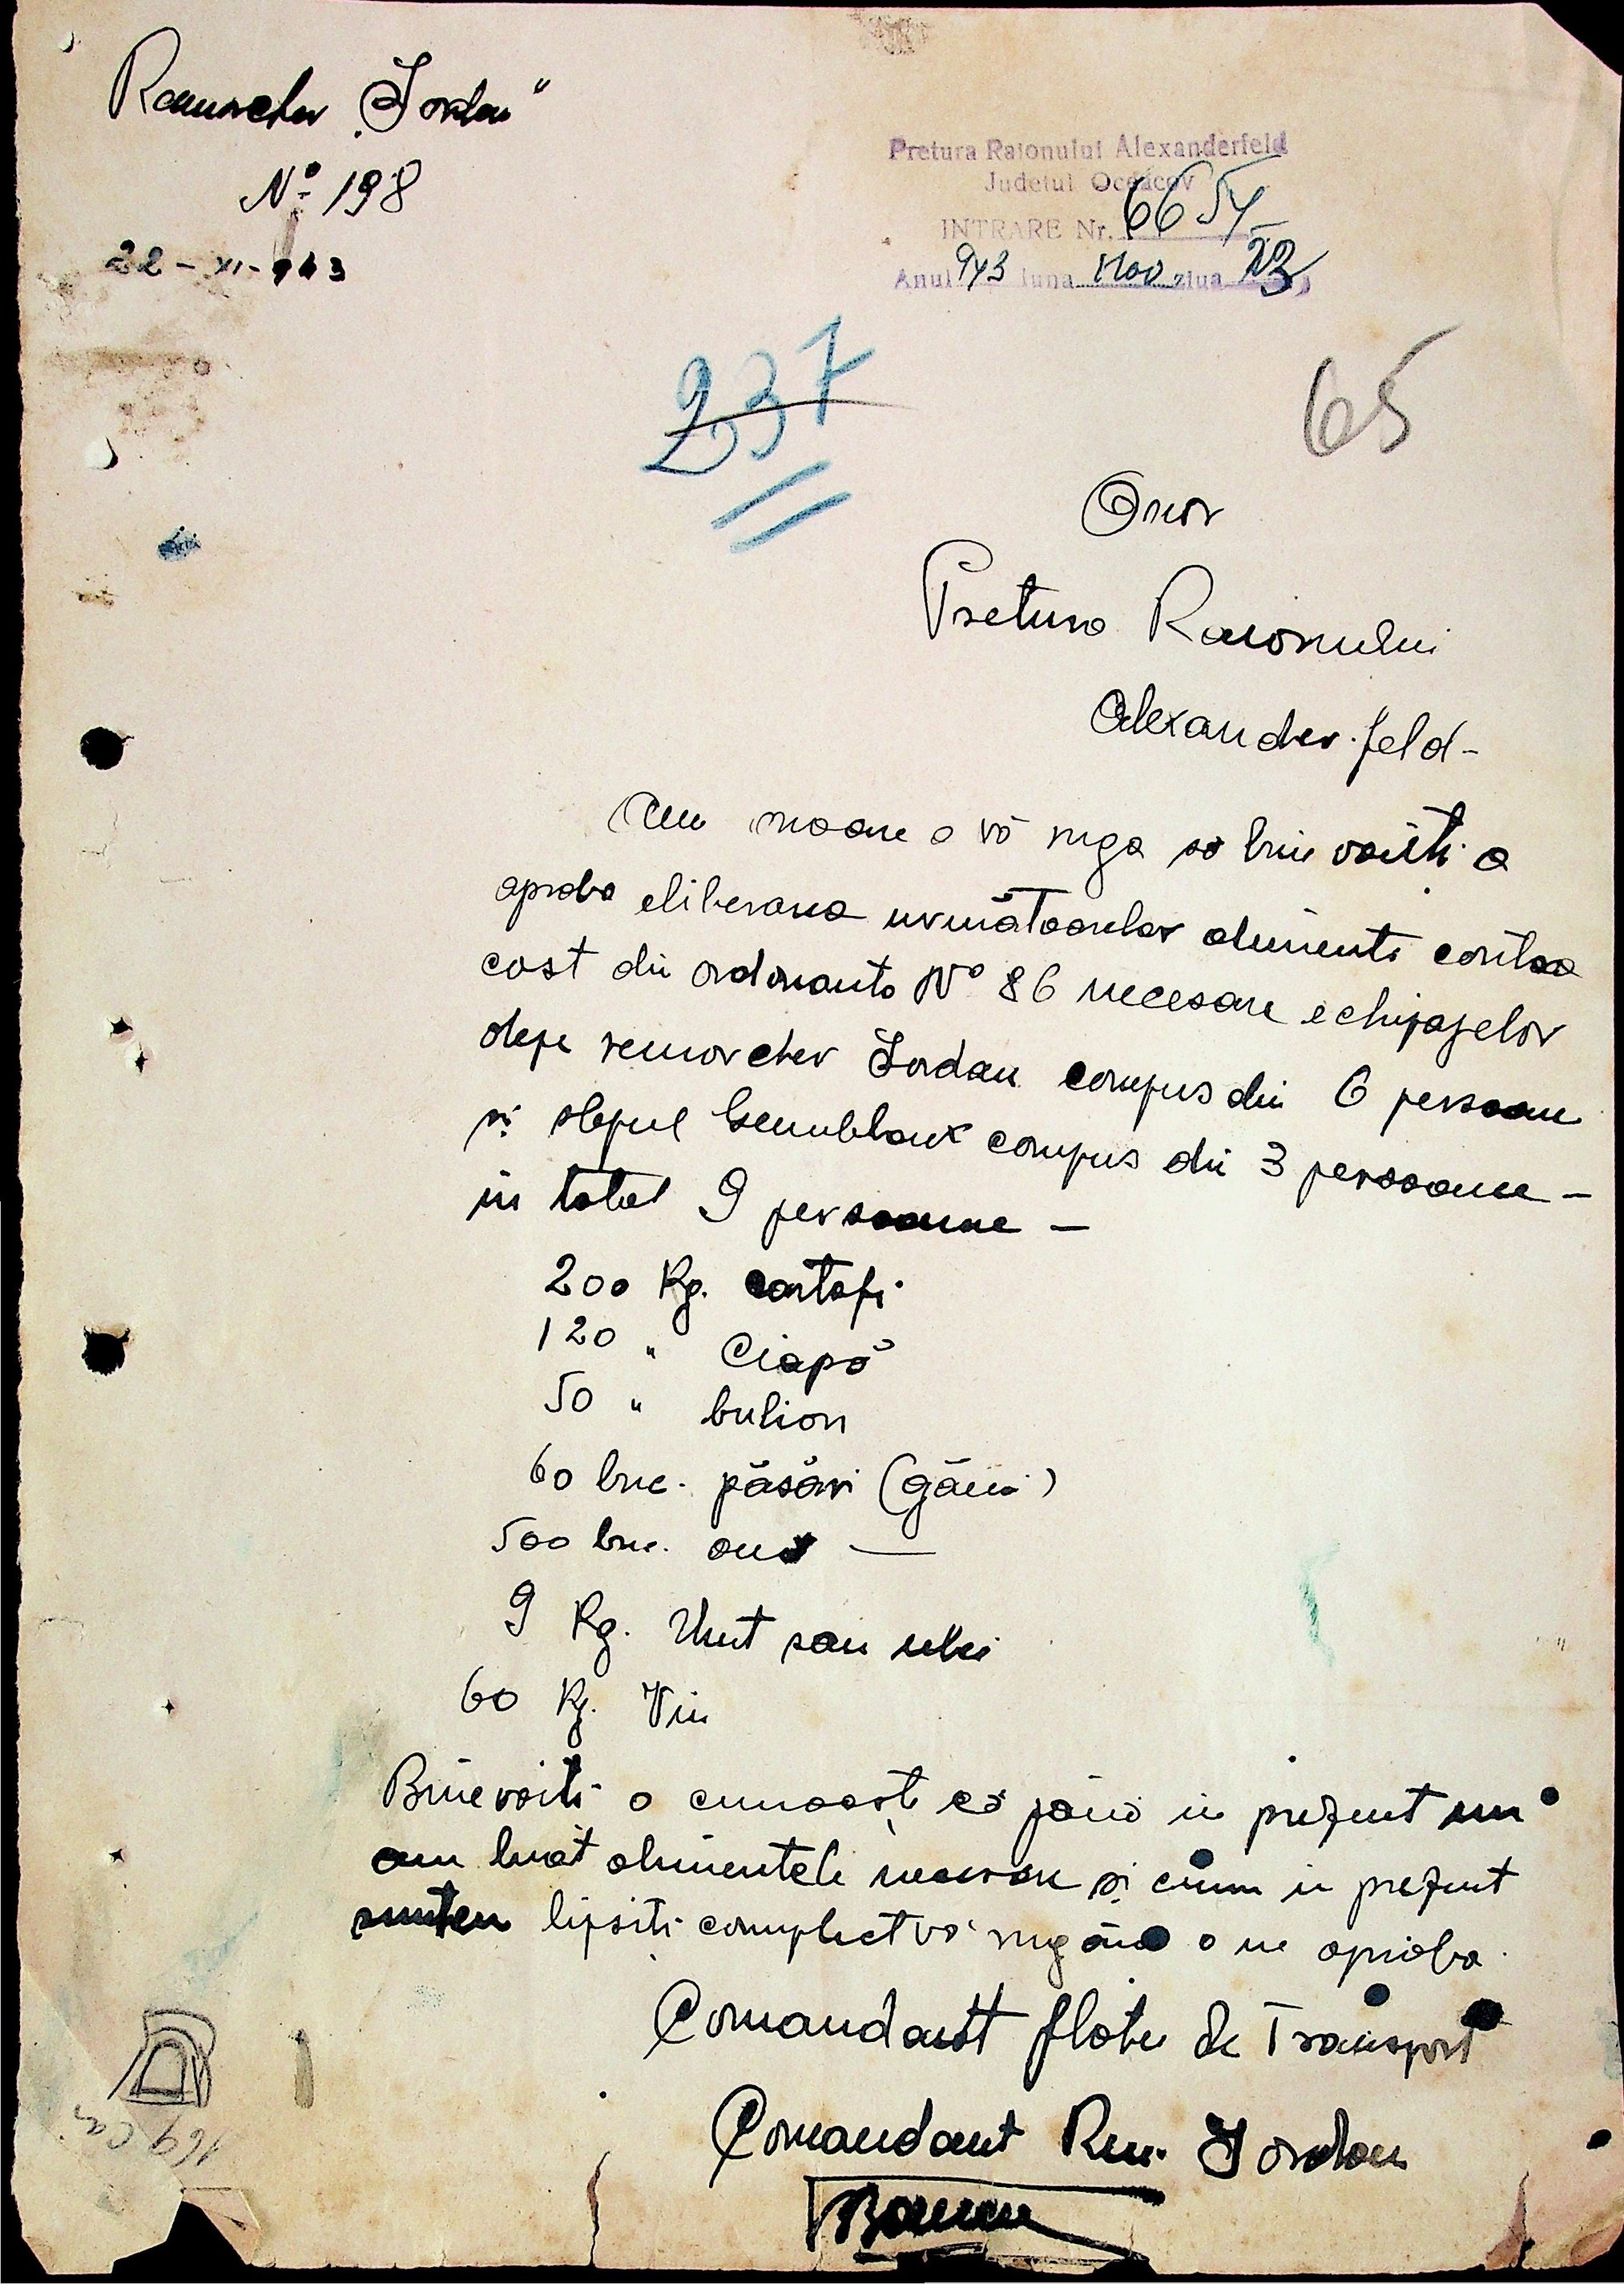 Remorcher „Iordan"
Nº 198
22-XI-943
Pretura Raionului Alexanderfeld
Județul Oceacov
INTRARE Nr. 6654
Anul 943 luna Nov ziua 23
237
65
Onor
Pretura Raionului
Alexander-feld-
Am onoare a vă ruga să bine voiți a
aproba eliberarea următoarelor alimente contra
cost din ordonanta Nº 86 necesare echipajelor
depe remorcher Iordan compus din 6 persoane
și șlepul Gemblaux compus din 3 persoane -
in total 9 persoane -
200 Kg. cartofi
120 " Ciapă
50 " bulion
60 buc. păsări (găini)
500 buc. oua —
9 Kg. Unt sau ulei
60 Kg. Vin
Binevoiti a cunoaște că până in prezent nu
am luat alimentele necesare și cum in prezent
suntem lipsiti complect vă rugăm a ne aproba.
Comandant flote de Transport
Comandant Rem. Iordan